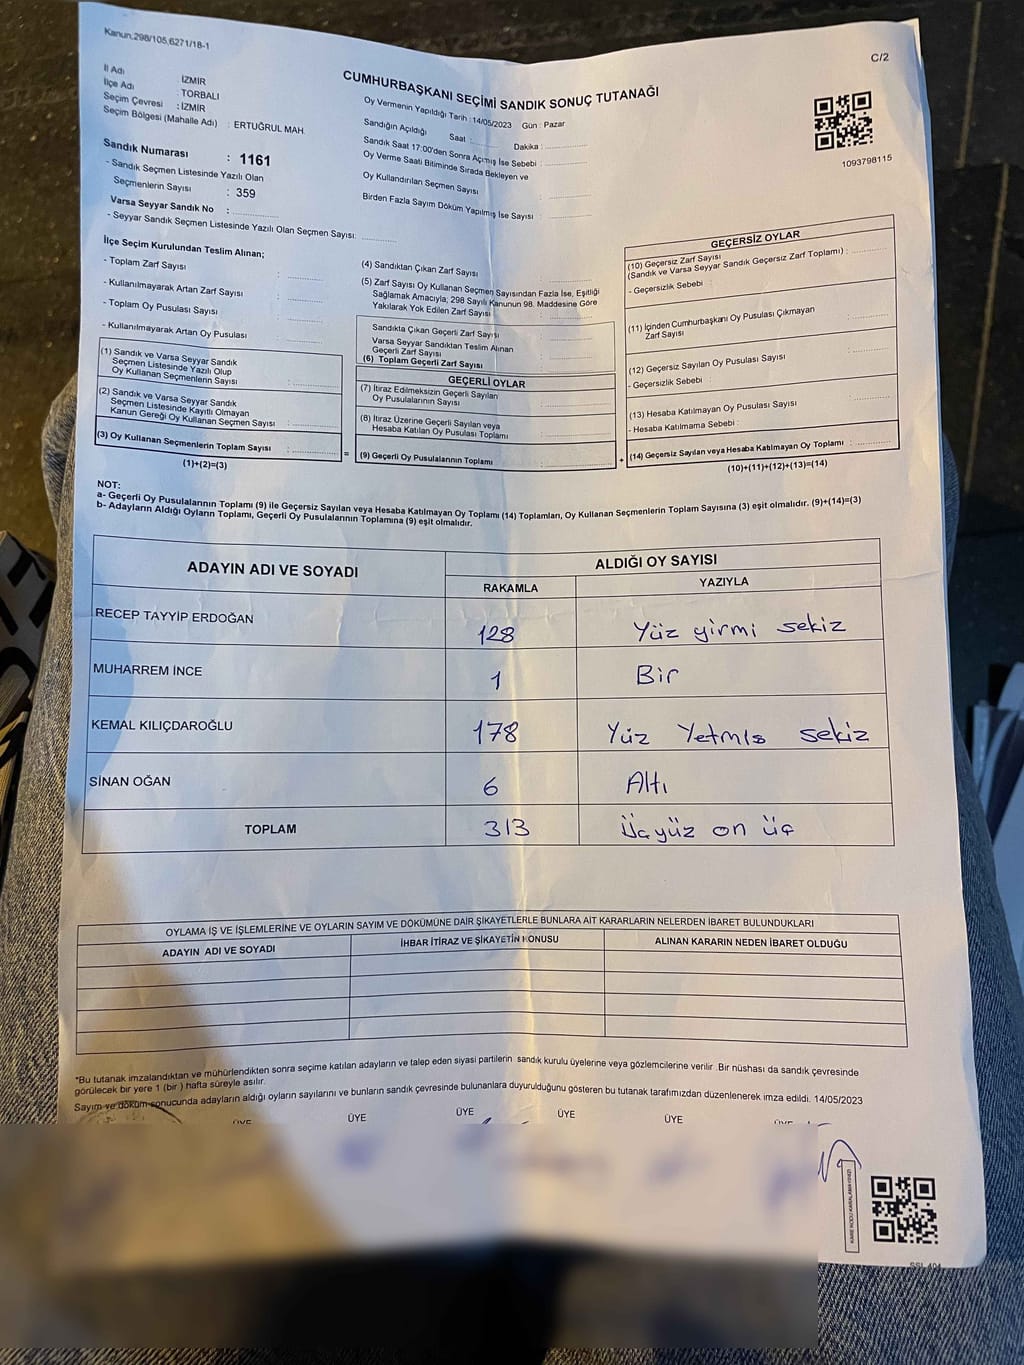 Kanun,298/105,6271/18-1
C/2
CUMHURBAŞKANI SEÇİMİ SANDIK SONUÇ TUTANAĞI
İl Adı : İZMİR
İlçe Adı : TORBALI
Seçim Çevresi : İZMİR
Seçim Bölgesi (Mahalle Adı) : ERTUĞRUL MAH.
Sandık Numarası : 1161
- Sandık Seçmen Listesinde Yazılı Olan
Seçmenlerin Sayısı : 359
Varsa Seyyar Sandık No :
- Seyyar Sandık Seçmen Listesinde Yazılı Olan Seçmen Sayısı:
Oy Vermenin Yapıldığı Tarih : 14/05/2023 Gün : Pazar
Sandığın Açıldığı Saat : Dakika :
Sandık Saat 17:00'den Sonra Açılmış İse Sebebi :
Oy Verme Saati Bitiminde Sırada Bekleyen ve
Oy Kullandırılan Seçmen Sayısı :
Birden Fazla Sayım Döküm Yapılmış İse Sayısı :
1093798115
İlçe Seçim Kurulundan Teslim Alınan;
- Toplam Zarf Sayısı :
- Kullanılmayarak Artan Zarf Sayısı :
- Toplam Oy Pusulası Sayısı :
- Kullanılmayarak Artan Oy Pusulası :
(1) Sandık ve Varsa Seyyar Sandık
Seçmen Listesinde Yazılı Olup
Oy Kullanan Seçmenlerin Sayısı :
(2) Sandık ve Varsa Seyyar Sandık
Seçmen Listesinde Kayıtlı Olmayan
Kanun Gereği Oy Kullanan Seçmen Sayısı :
(3) Oy Kullanan Seçmenlerin Toplam Sayısı :
(1)+(2)=(3)
=
(4) Sandıktan Çıkan Zarf Sayısı :
(5) Zarf Sayısı Oy Kullanan Seçmen Sayısından Fazla İse, Eşitliği
Sağlamak Amacıyla; 298 Sayılı Kanunun 98. Maddesine Göre
Yakılarak Yok Edilen Zarf Sayısı :
Sandıkta Çıkan Geçerli Zarf Sayısı :
Varsa Seyyar Sandıktan Teslim Alınan
Geçerli Zarf Sayısı :
(6) Toplam Geçerli Zarf Sayısı :
GEÇERLİ OYLAR
(7) İtiraz Edilmeksizin Geçerli Sayılan
Oy Pusulalarının Sayısı :
(8) İtiraz Üzerine Geçerli Sayılan veya
Hesaba Katılan Oy Pusulası Toplamı :
(9) Geçerli Oy Pusulalarının Toplamı :
+
GEÇERSİZ OYLAR
(10) Geçersiz Zarf Sayısı
(Sandık ve Varsa Seyyar Sandık Geçersiz Zarf Toplamı) :
- Geçersizlik Sebebi :
(11) İçinden Cumhurbaşkanı Oy Pusulası Çıkmayan
Zarf Sayısı :
(12) Geçersiz Sayılan Oy Pusulası Sayısı :
- Geçersizlik Sebebi :
(13) Hesaba Katılmayan Oy Pusulası Sayısı :
- Hesaba Katılmama Sebebi :
(14) Geçersiz Sayılan veya Hesaba Katılmayan Oy Toplamı :
(10)+(11)+(12)+(13)=(14)
NOT:
a- Geçerli Oy Pusulalarının Toplamı (9) ile Geçersiz Sayılan veya Hesaba Katılmayan Oy Toplamı (14) Toplamları, Oy Kullanan Seçmenlerin Toplam Sayısına (3) eşit olmalıdır. (9)+(14)=(3)
b- Adayların Aldığı Oyların Toplamı, Geçerli Oy Pusulalarının Toplamına (9) eşit olmalıdır.
ADAYIN ADI VE SOYADI
ALDIĞI OY SAYISI
RAKAMLA YAZIYLA
RECEP TAYYİP ERDOĞAN 128 Yüz yirmi sekiz
MUHARREM İNCE 1 Bir
KEMAL KILIÇDAROĞLU 178 Yüz Yetmış sekiz
SİNAN OĞAN 6 Altı
TOPLAM 313 Üçyüz on üç
OYLAMA İŞ VE İŞLEMLERİNE VE OYLARIN SAYIM VE DÖKÜMÜNE DAİR ŞİKAYETLERLE BUNLARA AİT KARARLARIN NELERDEN İBARET BULUNDUKLARI
ADAYIN ADI VE SOYADI İHBAR İTİRAZ VE ŞİKAYETİN KONUSU ALINAN KARARIN NEDEN İBARET OLDUĞU
*Bu tutanak imzalandıktan ve mühürlendikten sonra seçime katılan adayların ve talep eden siyasi partilerin sandık kurulu üyelerine veya gözlemcilerine verilir .Bir nüshası da sandık çevresinde
görülecek bir yere 1 (bir ) hafta süreyle asılır.
Sayım ve döküm sonucunda adayların aldığı oyların sayılarını ve bunların sandık çevresinde bulunanlara duyurulduğunu gösteren bu tutanak tarafımızdan düzenlenerek imza edildi. 14/05/2023
ÜYE ÜYE ÜYE ÜYE ÜYE ÜYE
KARE KODU KARALAMAYINIZ!